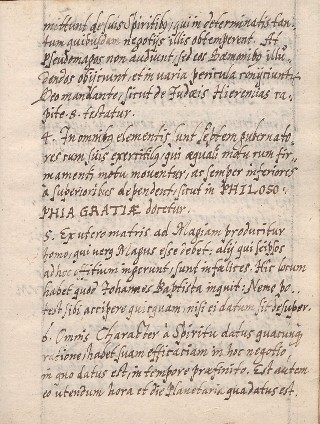 mittunt de suis Spiritibus, qui in determinatis tan-
tum quibusdam negotijs illis obtemperent. At
Pseudomagos non audiunt, sed eos Dæmonibus illu-
dendos objiciunt, et in varia pericula conijciunt,
Deo mandante, sicut de Judæis Hieremias ca-
pite 8. testatur.
4. In omnibus elementis sunt septem gubernato-
res cum suis exercitibus, qui æquali motu cum fir-
mamenti motu moventur, ac semper inferiores
a superioribus dependent, sicut in PHILOSO-
PHIA GRATIÆ docetur.
5. Ex utero matris ad Magiam producitur
homo, qui verus Magus esse debet. alij qui seipsos
ad hoc officium ingerunt, sunt infælices. Hic locum
habet quod Johannes Baptista inquit: Nemo po-
test sibi accipere quicquam nisi ei datum sit desuper.
6. Omnis Character à Spiritu datus quacunque
ratione, habet suam efficatiam in hoc negotio,
in quo datus est, in tempore præfinito. Est autem
eo utendum hora et die Planetaria qua datus est.